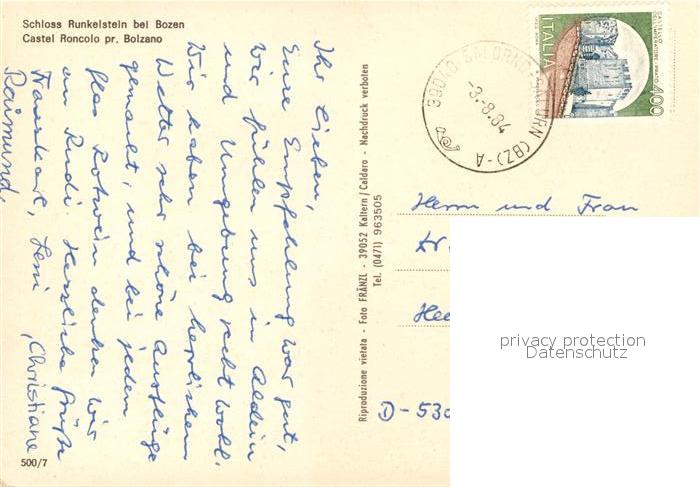 Schloss Runkelstein bei Bozen
Castel Roncolo pr. Bolzano
Ihr Lieben,
Eure Empfehlung war gut,
wir fühlen uns in Aldein
und Umgebung recht wohl.
Wir haben bei herrlichem
Wetter sehr schöne Ausflüge
gemacht, und bei jedem
Glas Rotwein denken wir
an Rudi. Herzliche Grüße
Leni, Christiane
Raimund,
500/7
Riproduzione vietata - Foto FRÄNZL - 39052 Kaltern/Caldaro - Nachdruck verboten
Tel. (0471) 963505
39040 SALORNO-SALURN (BZ)-A
-3.-8.84
ITALIA
CASTELLO DELL'IMPERATORE - PRATO
400
Herrn und Frau
D-530
privacy protection
Datenschutz